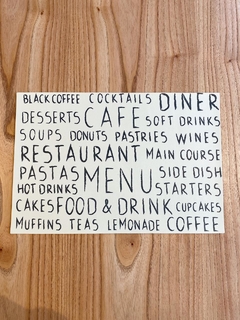 BLACK COFFEE COCKTAILS DINER
DESSERTS CAFE SOFT DRINKS
SOUPS DONUTS PASTRIES WINES
RESTAURANT MAIN COURSE
PASTAS MENU SIDE DISH
HOT DRINKS STARTERS
CAKES FOOD & DRINK CUPCAKES
MUFFINS TEAS LEMONADE COFFEE